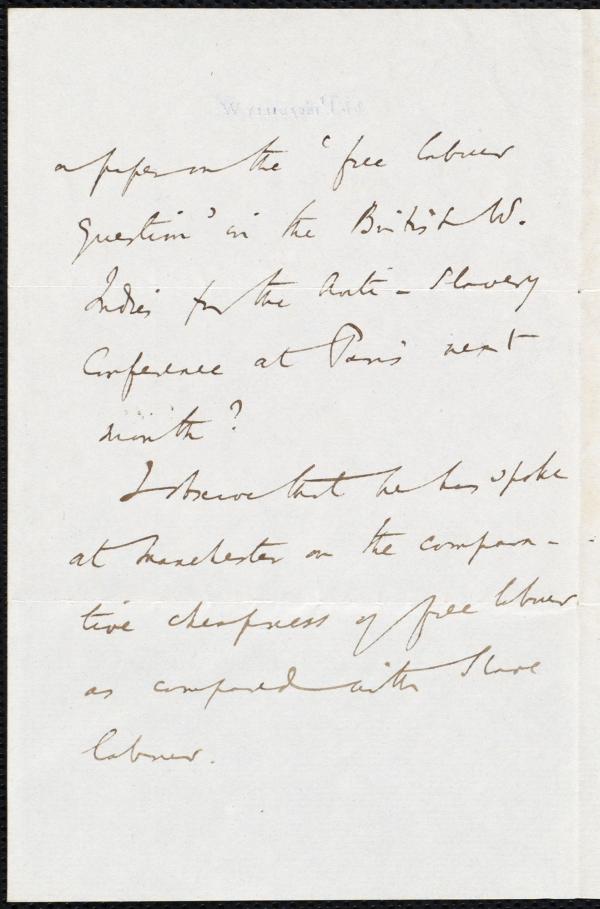 a paper on the 'free labour
question' in the British W.
Indies for the Anti-Slavery
Conference at Paris next
month?
I observe that he has spoke
at Manchester on the compara-
tive cheapness of free labour
as compared with Slave
labour.